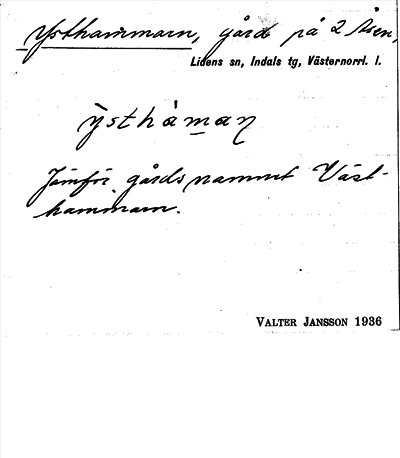 Ysthammarn, gård på 2 Åsen,
Lidens sn, Indals tg, Västernorrl. l.
ÿsthàmaɲ
Jämför gårdsnamnet Väst-
hammarn.
VALTER JANSSON 1936